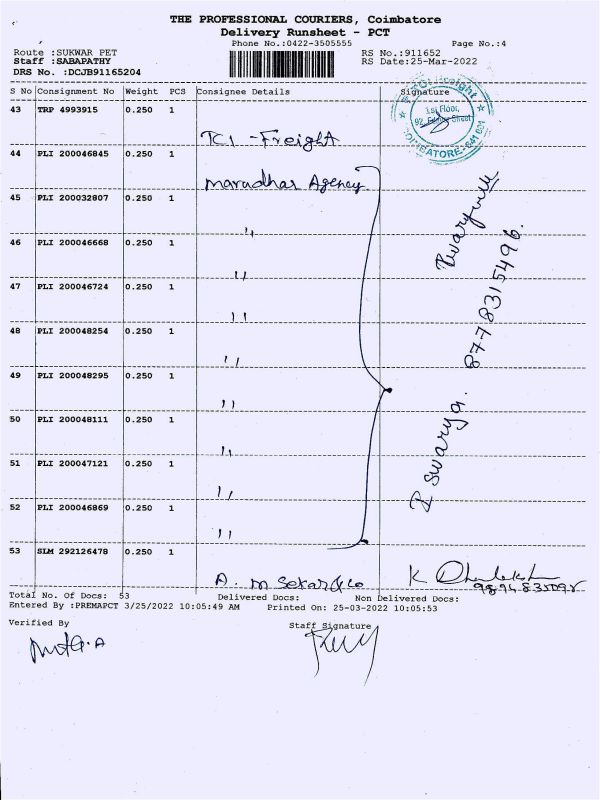 THE PROFESSIONAL COURIERS, Coimbatore
Delivery Runsheet - PCT
Phone No.:0422-3505555 Page No.:4
Route :SUKWAR PET RS No.:911652
Staff :SABAPATHY RS Date:25-Mar-2022
DRS No. :DCJB91165204
S No Consignment No Weight PCS Consignee Details Signature
43 TRP 4993915 0.250 1
TCI - Freight
1st Floor,
COIMBATORE-641 001
44 PLI 200046845 0.250 1
Marudhar Agency
45 PLI 200032807 0.250 1
"
46 PLI 200046668 0.250 1
"
47 PLI 200046724 0.250 1
"
48 PLI 200048254 0.250 1
"
49 PLI 200048295 0.250 1
"
50 PLI 200048111 0.250 1
"
51 PLI 200047121 0.250 1
"
52 PLI 200046869 0.250 1
"
8778315496.
53 SLM 292126478 0.250 1
A. M Sekar & Co
Total No. Of Docs: 53 Delivered Docs: Non Delivered Docs:
Entered By :PREMAPCT 3/25/2022 10:05:49 AM Printed On: 25-03-2022 10:05:53
Verified By Staff Signature